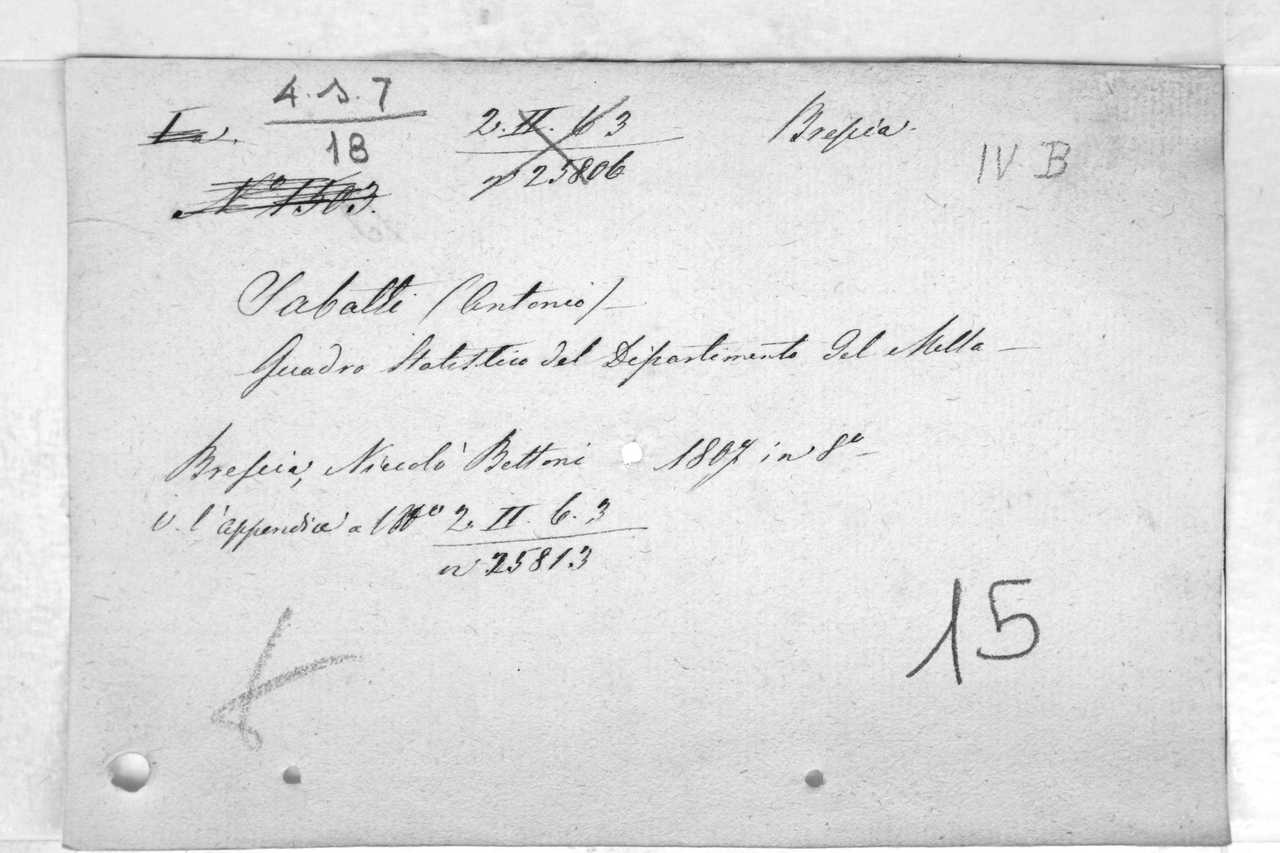 4.s.7
18
2.II.6 3
n 25806
Brescia.
IV B
Nº 1503.
Sabatti (Antonio)
Quadro Statistico del Dipartimento del Mella
Brescia, Niccolò Bettoni 1807 in 8º
V. l'appendice a 2. II. 6. 3
n 25813
15